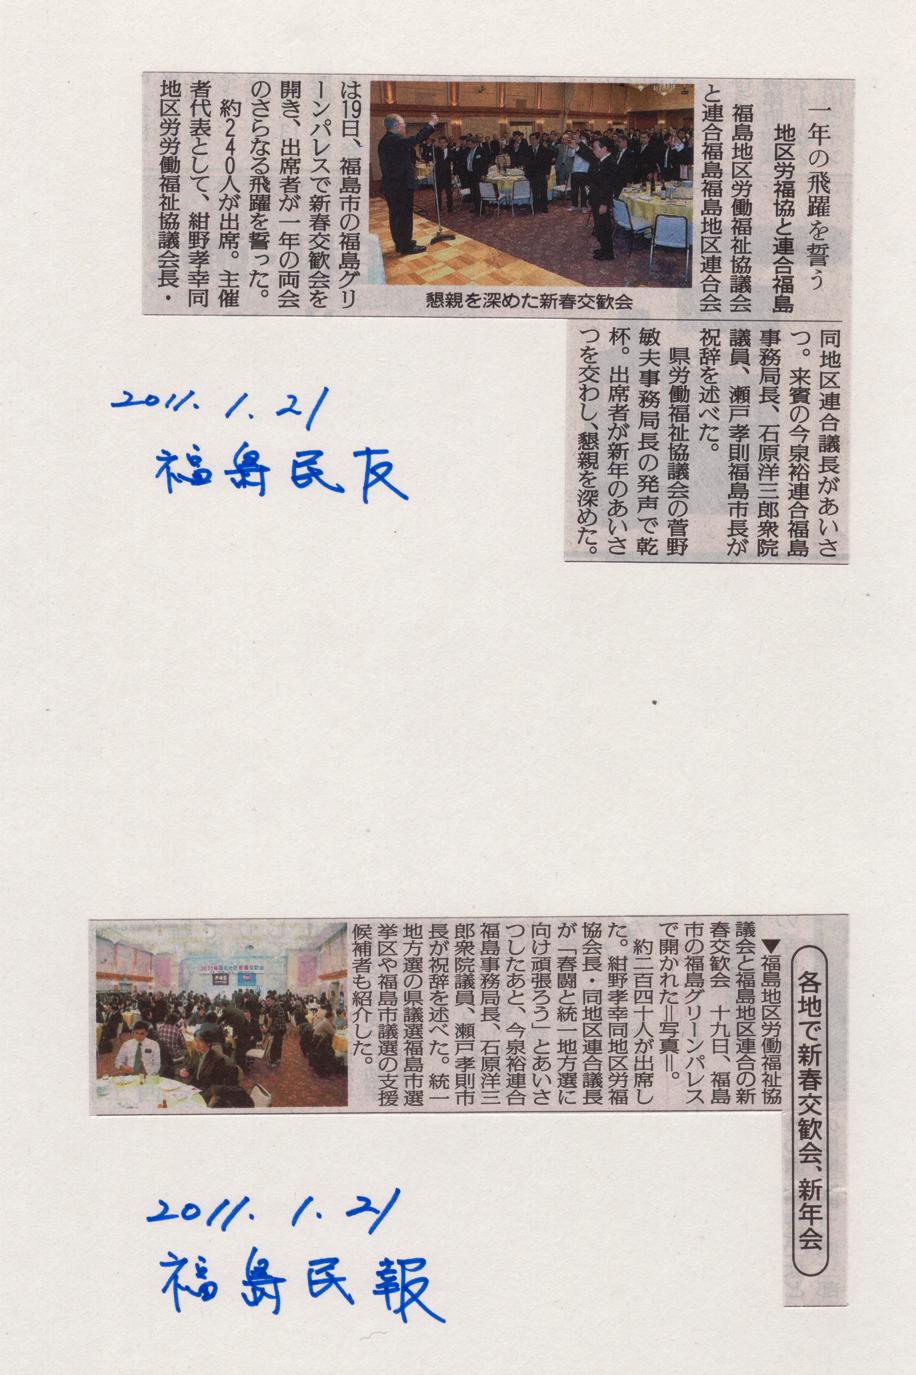 一年の飛躍を誓う
地区労福協と連合福島
福島地区労働福祉協議会
と連合福島福島地区連合会
は19日、福島市の福島グリ
ーンパレスで新春交歓会を
開き、出席者が一年の両会
のさらなる飛躍を誓った。
約240人が出席。主催
者代表として、紺野孝幸同
地区労労働福祉協議会長・
懇親を深めた新春交歓会
同地区連合議長があいさ
つ。来賓の今泉裕連合福島
事務局長、石原洋三郎衆院
議員、瀬戸孝則福島市長が
祝辞を述べた。
県労働福祉協議会の菅野
敏夫事務局長の発声で乾
杯。出席者が新年のあいさ
つを交わし、懇親を深めた。
2011.1.21
福島民友
各地で新春交歓会、新年会
▼福島地区労働福祉協
議会と福島地区連合の新
春交歓会 十九日、福島
市の福島グリーンパレス
で開かれた＝写真＝。
約二百四十人が出席し
た。紺野孝幸同地区労福
協会長・同地区連合議長
が「春闘と統一地方選に
向け頑張ろう」とあいさ
つしたあと、今泉裕連合
福島事務局長、石原洋三
郎衆院議員、瀬戸孝則市
長が祝辞を述べた。統一
地方選の県議選福島市選
挙区や福島市議選の支援
候補者も紹介した。
2011.1.21
福島民報